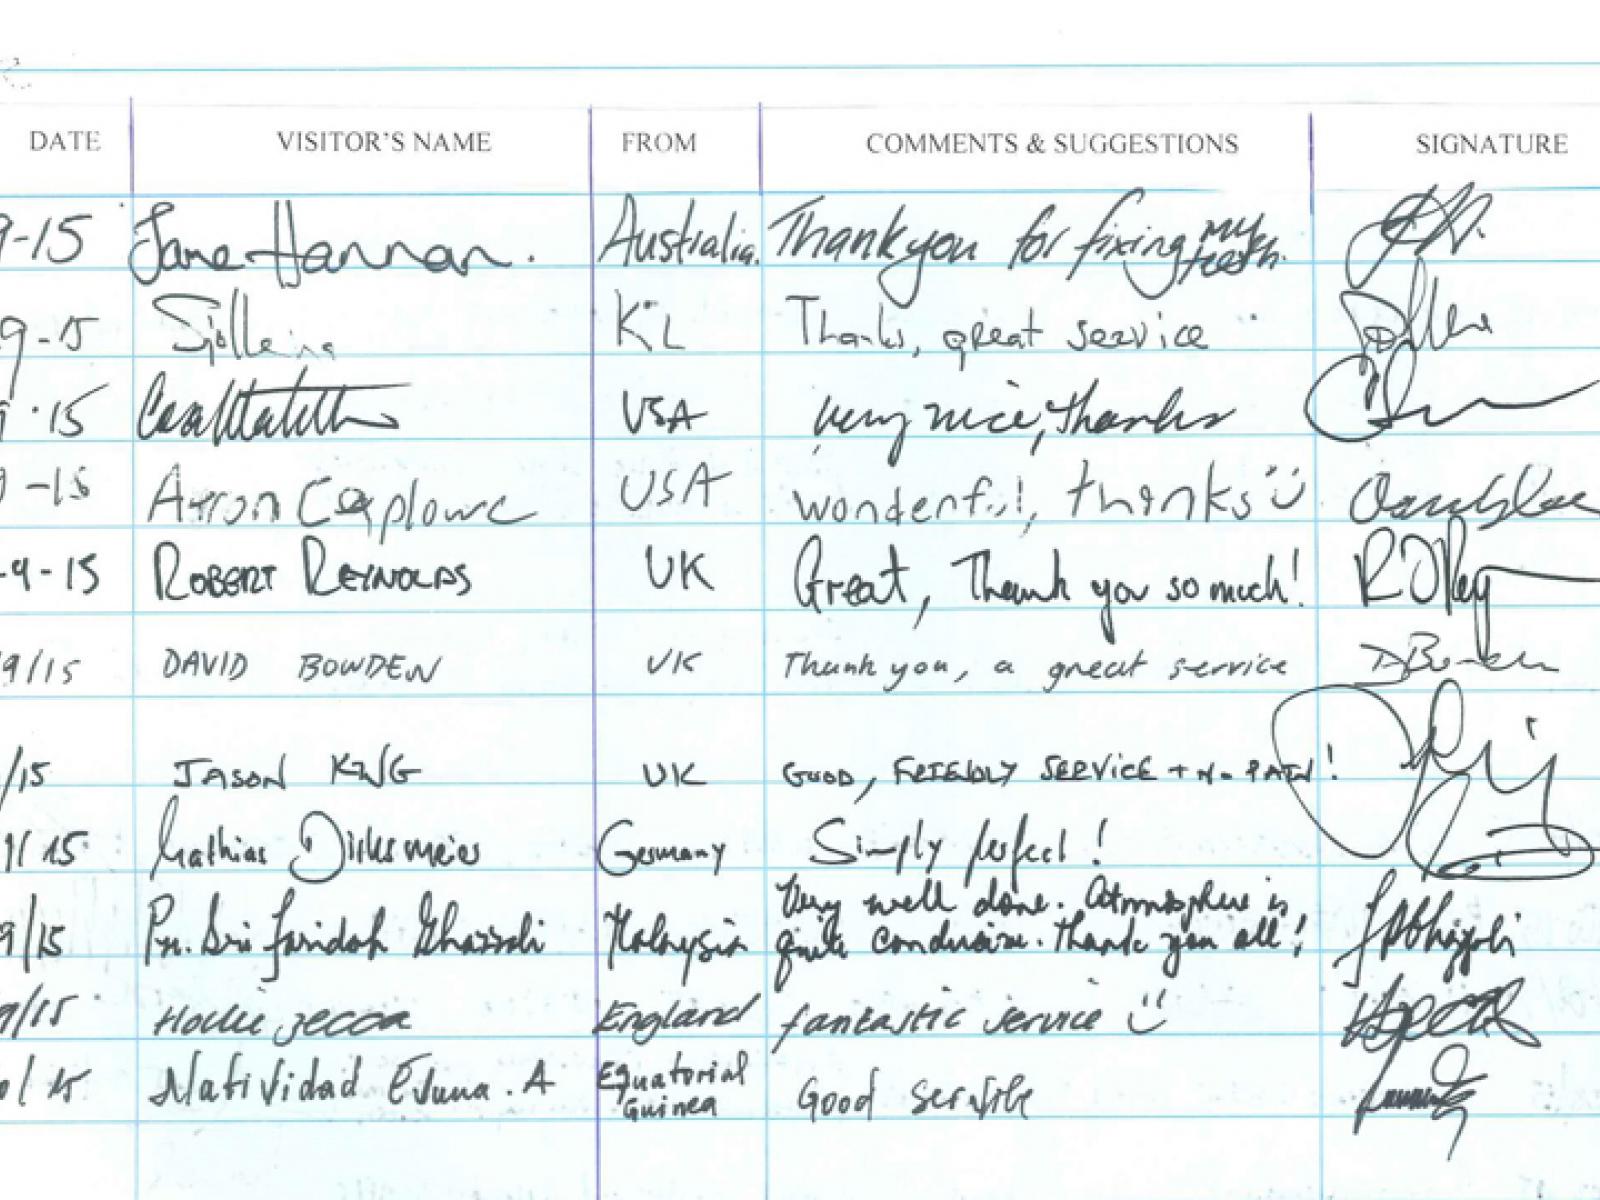 DATE VISITOR'S NAME FROM COMMENTS & SUGGESTIONS SIGNATURE
9-15 Jane Hannan. Australia. Thank you for fixing my teeth.
9-15 KL Thanks, great service
9.15 USA very nice, thanks
9-15 USA wonderful, thanks
-9-15 ROBERT REYNOLDS UK Great, Thank you so much!
9/15 DAVID BOWDEN UK Thank you, a great service
/15 JASON KING UK GOOD, FRIENDLY SERVICE + NO PAIN!
9/15 Mathias Germany Simply perfect!
9/15 Pn. Sri Faridah Ghazali Malaysia Very well done. Atmosphere is
quite conducive. Thank you all!
9/15 Hollie England fantastic service
0/15 Natividad A Equatorial
Guinea Good service